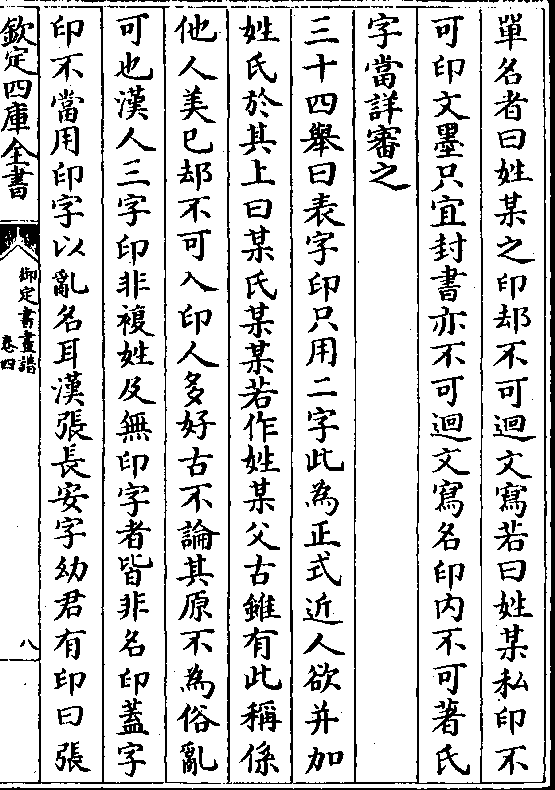 單名者曰姓某之印却不可迴文寫若曰姓某私印不
可印文墨只宜封書亦不可迴文寫名印内不可著氏
字當詳審之
三十四舉曰表字印只用二字此為正式近人欲并加
姓氏於其上曰某氏某某若作姓某父古雖有此稱係
他人美已却不可入印人多好古不論其原不為俗亂
可也漢人三字印非複姓及無印字者皆非名印蓋字
印不當用印字以亂名耳漢張長安字幼君有印曰張
欽定四庫全書
御定書畫譜
卷四
八